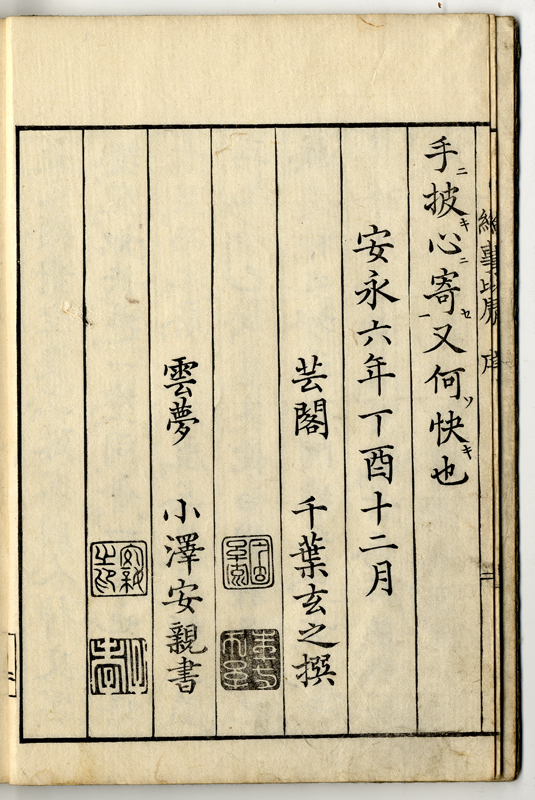 手ニ披キ心ニ寄セ一又何ッ快キ也
安永六年丁酉十二月
芸閣 千葉玄之撰
雲夢 小澤安親書